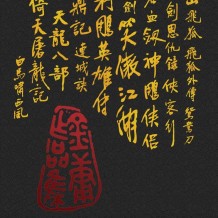 山飛狐 飛狐外傳 鴛鴦刀
劍恩仇錄 俠客行
血劍 神鵰俠侶
劍 笑傲江湖
射鵰英雄傳
鼎記 連城訣
天龍八部
倚天屠龍記
白馬嘯西風
金庸作品集